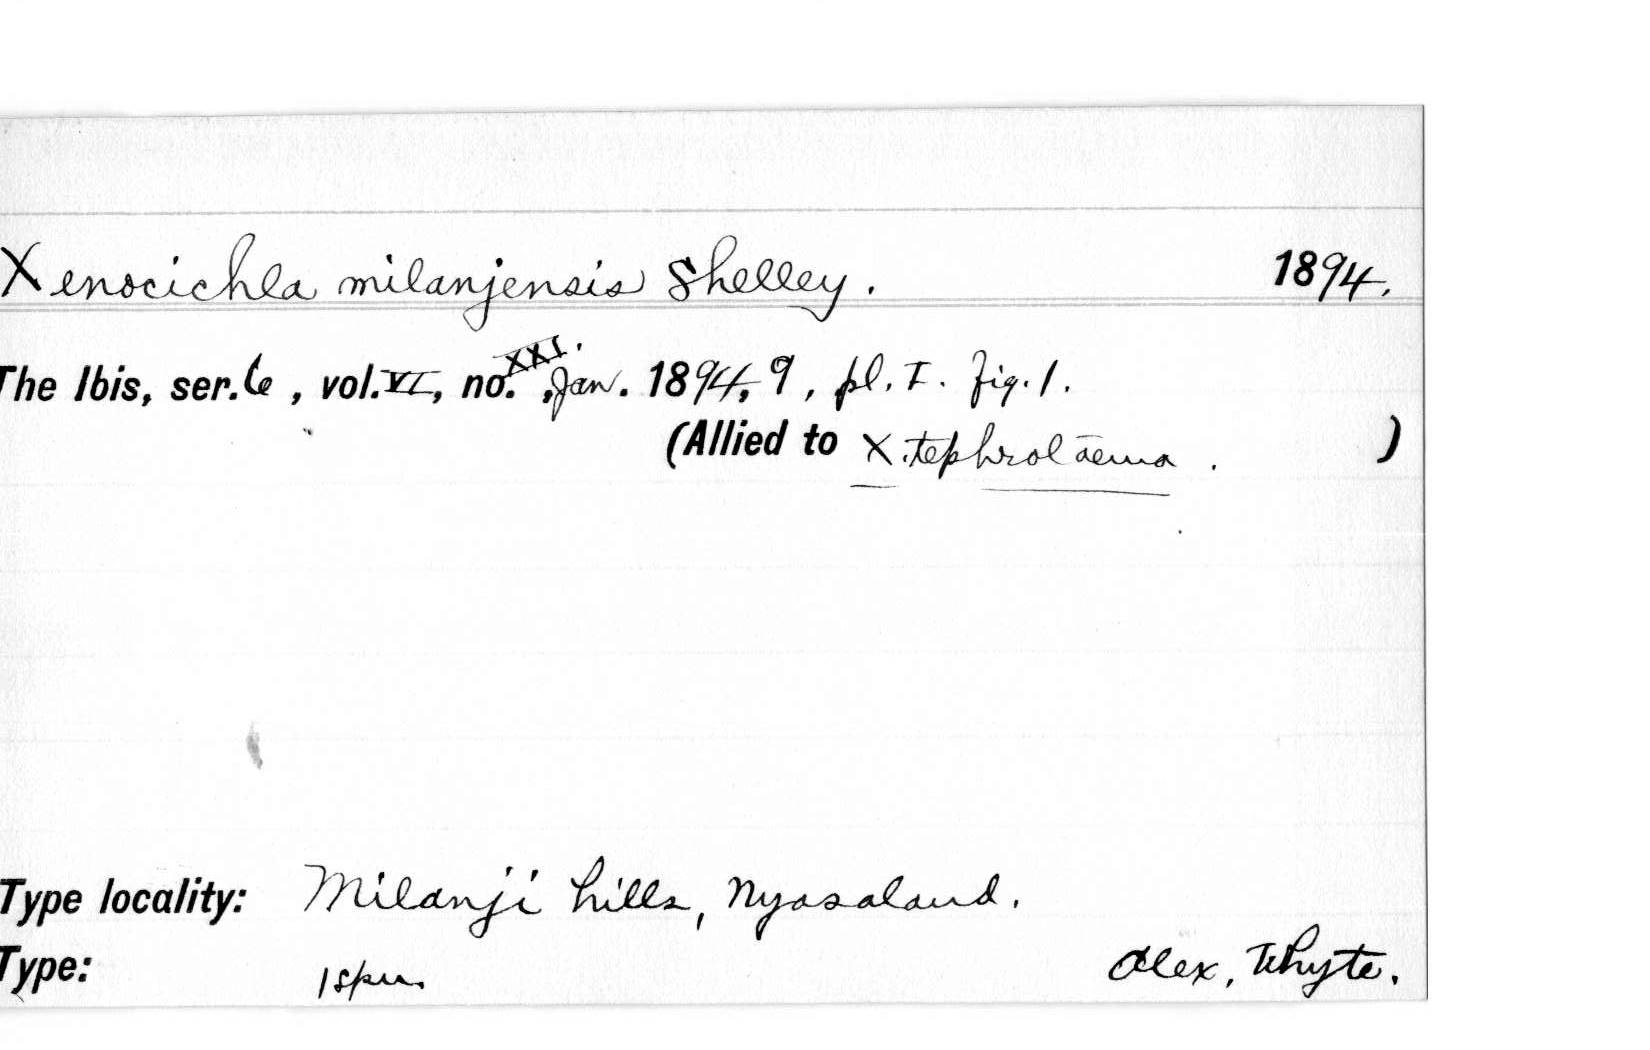 Xenocichla milanjensis Shelley. 1894.
The Ibis, ser. 6, vol. VI, no. XXI., Jan. 1894, 9, pl. I. fig. 1.
(Allied to X. tephrolaema. )
Type locality: Milanji hills, Nyasaland.
Type: 1 spm. Alex, Whyte.